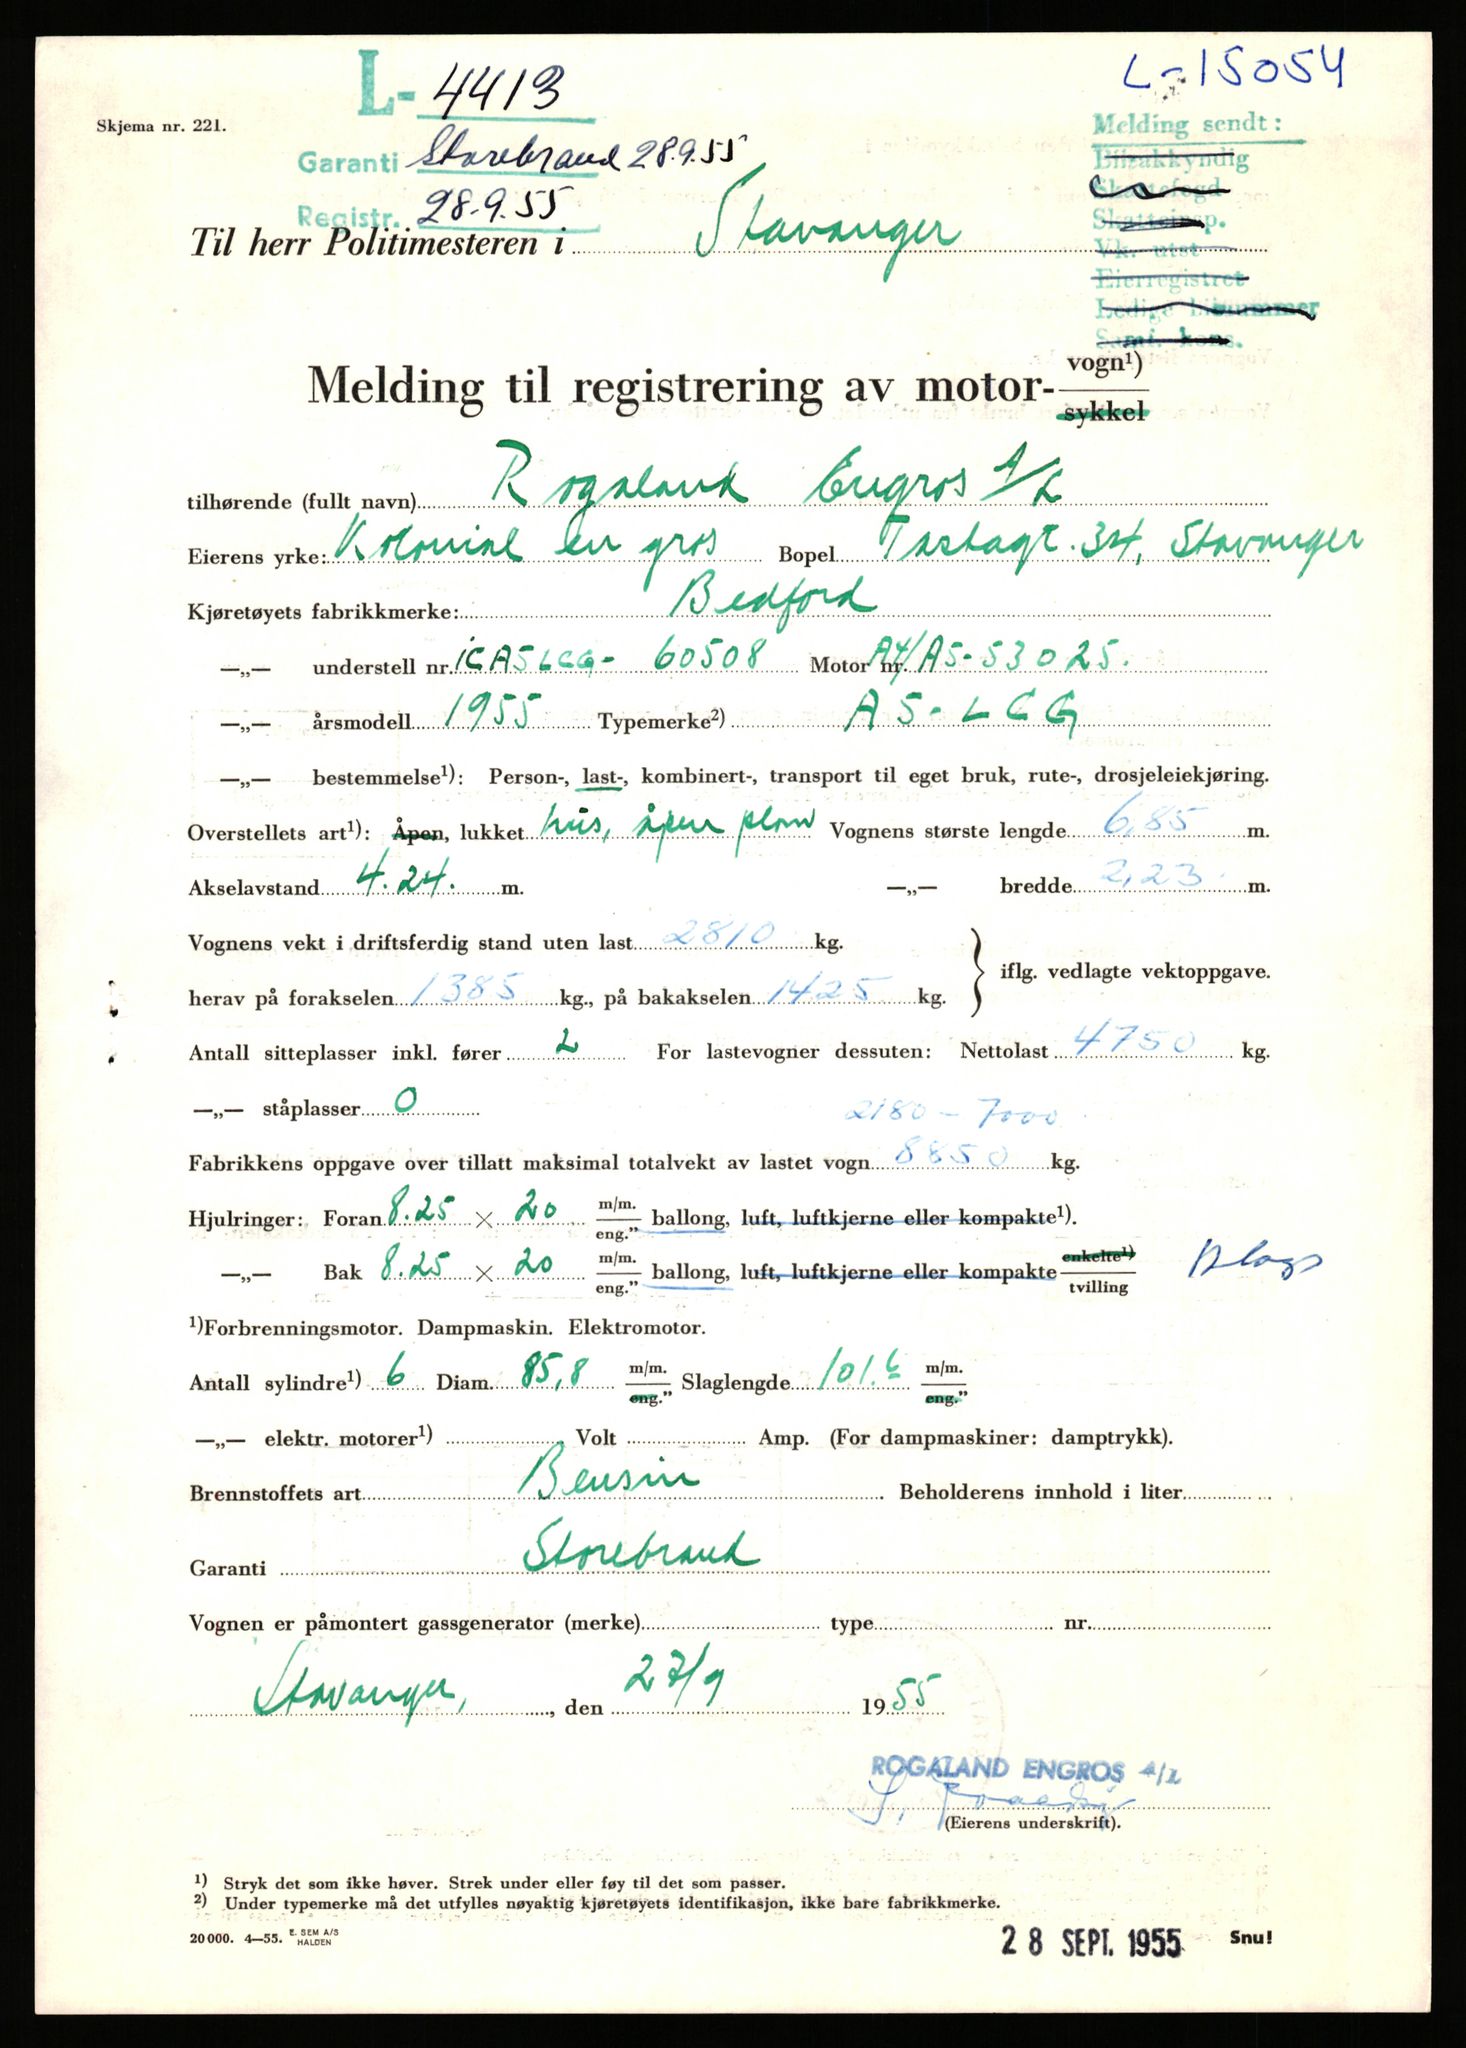 L-4413
L-15054
Skjema nr. 221.
Garanti Storebrand 28.9.55
Registr. 28.9.55
Melding sendt:
Bilsakkyndig
Skattefogd
Skatteinsp.
Vk. utst
Eierregistret
Ledige
Saml. kons.
Til herr Politimesteren i Stavanger
Melding til registrering av motor- vogn¹)
sykkel
tilhørende (fullt navn) Rogaland Engros A/L
Eierens yrke: Kolonial en gros Bopel Tastagt. 34, Stavanger
Kjøretøyets fabrikkmerke: Bedford
—„— understell nr. ICA5LCG- 60508 Motor nr. A4/A5-53025.
—„— årsmodell 1955 Typemerke²) A5-LCG
—„— bestemmelse¹): Person-, last-, kombinert-, transport til eget bruk, rute-, drosjeleiekjøring.
Overstellets art¹): Åpen, lukket hus, åpen plan Vognens største lengde 6,85 m.
Akselavstand 4.24. m. —„— bredde 2,23 m.
Vognens vekt i driftsferdig stand uten last 2810 kg.
herav på forakselen 1385 kg., på bakakselen 1425 kg. iflg. vedlagte vektoppgave.
Antall sitteplasser inkl. fører 2 For lastevogner dessuten: Nettolast 4750 kg.
—„— ståplasser 0
2180 - 7000
Fabrikkens oppgave over tillatt maksimal totalvekt av lastet vogn 8850 kg.
Hjulringer: Foran 8.25 × 20 m/m. eng." ballong, luft, luftkjerne eller kompakte¹).
—„— Bak 8.25 × 20 m/m. eng." ballong, luft, luftkjerne eller kompakte enkelte¹) tvilling
¹)Forbrenningsmotor. Dampmaskin. Elektromotor.
Antall sylindre¹) 6 Diam. 85,8 m/m. eng." Slaglengde 101.6 m/m. eng."
—„— elektr. motorer¹) Volt Amp. (For dampmaskiner: damptrykk).
Brennstoffets art Bensin Beholderens innhold i liter
Garanti Storebrand
Vognen er påmontert gassgenerator (merke) type nr.
Stavanger, den 27/9 1955
ROGALAND ENGROS A/L
(Eierens underskrift).
¹) Stryk det som ikke høver. Strek under eller føy til det som passer.
²) Under typemerke må det utfylles nøyaktig kjøretøyets identifikasjon, ikke bare fabrikkmerke.
20000. 4—55. E. SEM A/S HALDEN
28 SEPT. 1955 Snu!